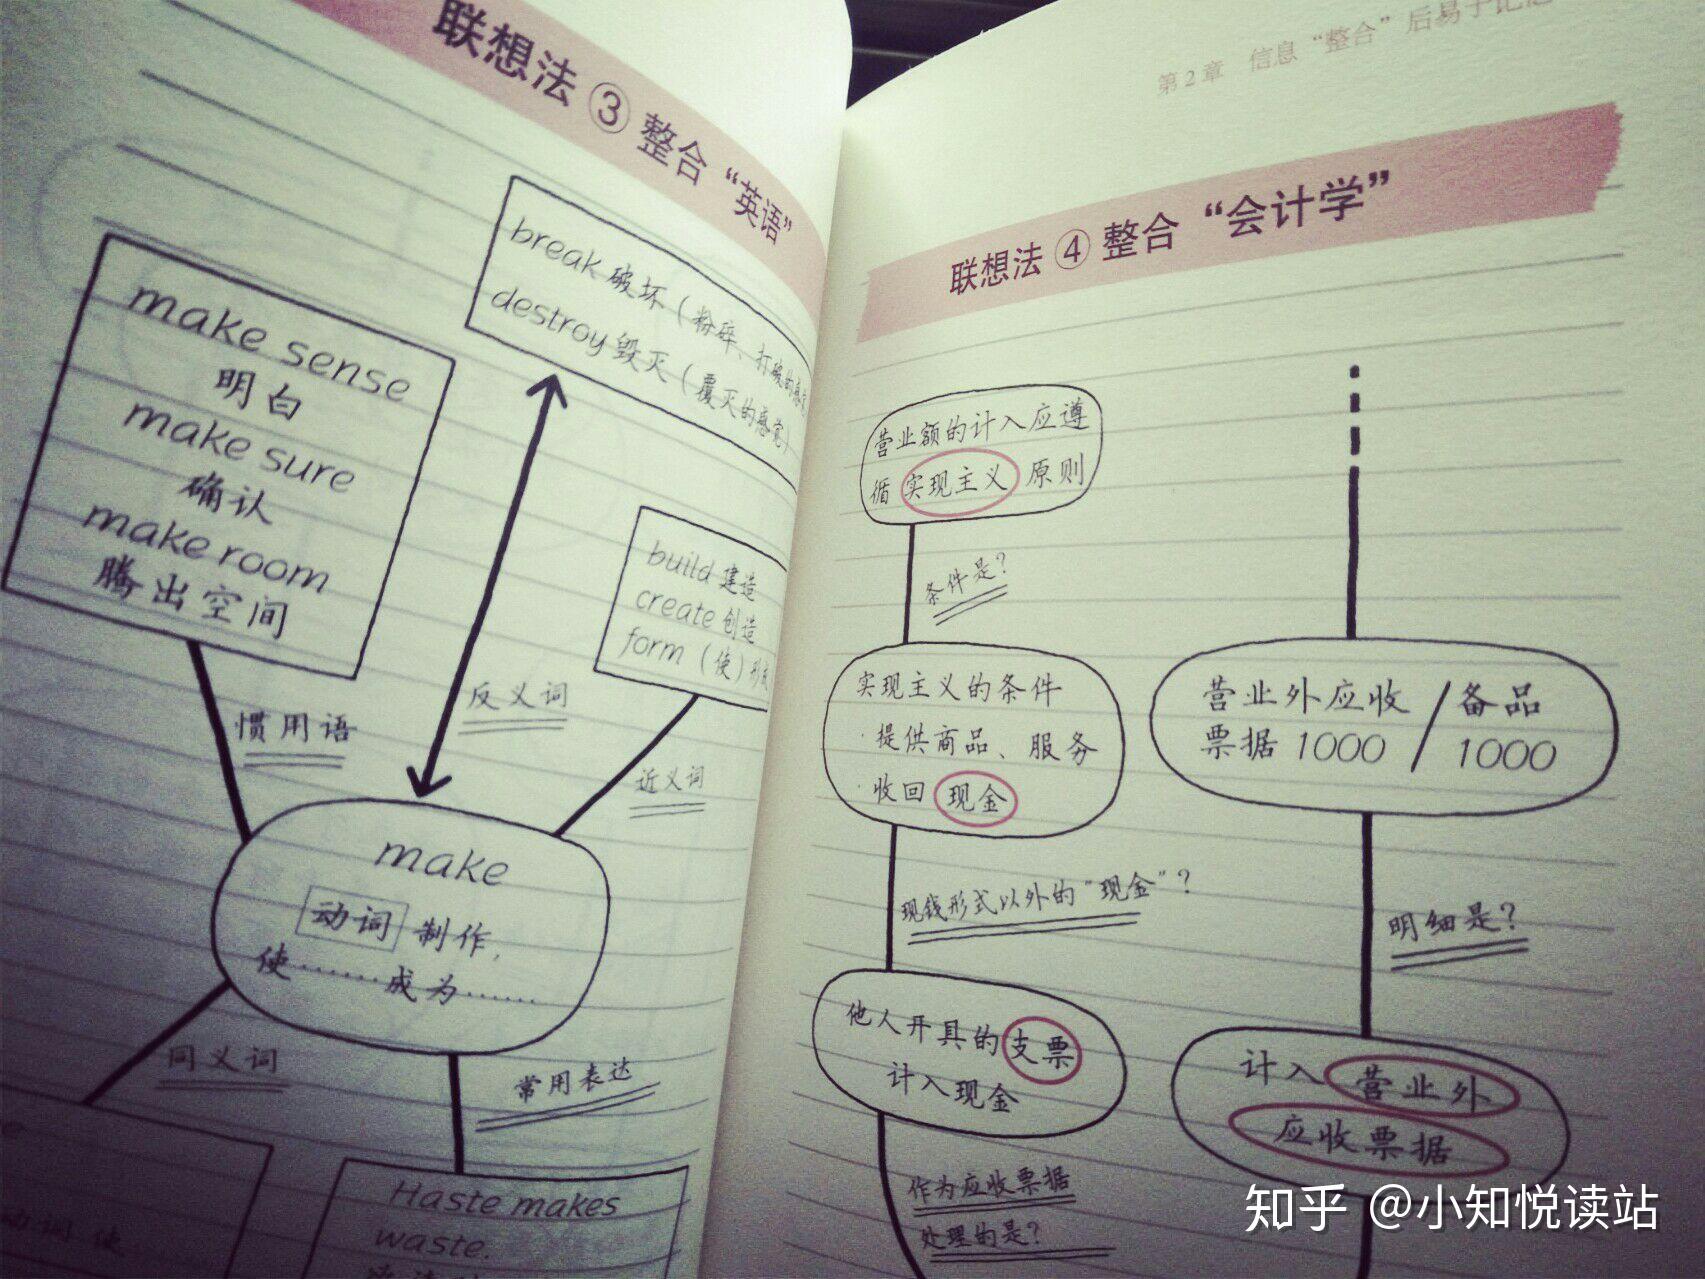 联想法 ③ 整合 “英语”
break 破坏（粉碎、打破的感觉
destroy 毁灭（覆灭的感觉）
make sense
明白
make sure
确认
make room
腾出空间
build 建造
create 创造
form（使）形成
反义词
惯用语
近义词
make
动词 制作,
使……成为……
同义词
常用表达
动词 使
Haste makes
waste.
第2章 信息“整合”后易于记忆
联想法 ④ 整合 “会计学”
营业额的计入应遵
循 实现主义 原则
条件是?
实现主义的条件
·提供商品、服务
·收回 现金
现钱形式以外的“现金”?
他人开具的支票
计入现金
作为应收票据
处理的是?
营业外应收 / 备品
票据 1000 / 1000
明细是?
计入 营业外
应收票据
知乎 @小知悦读站